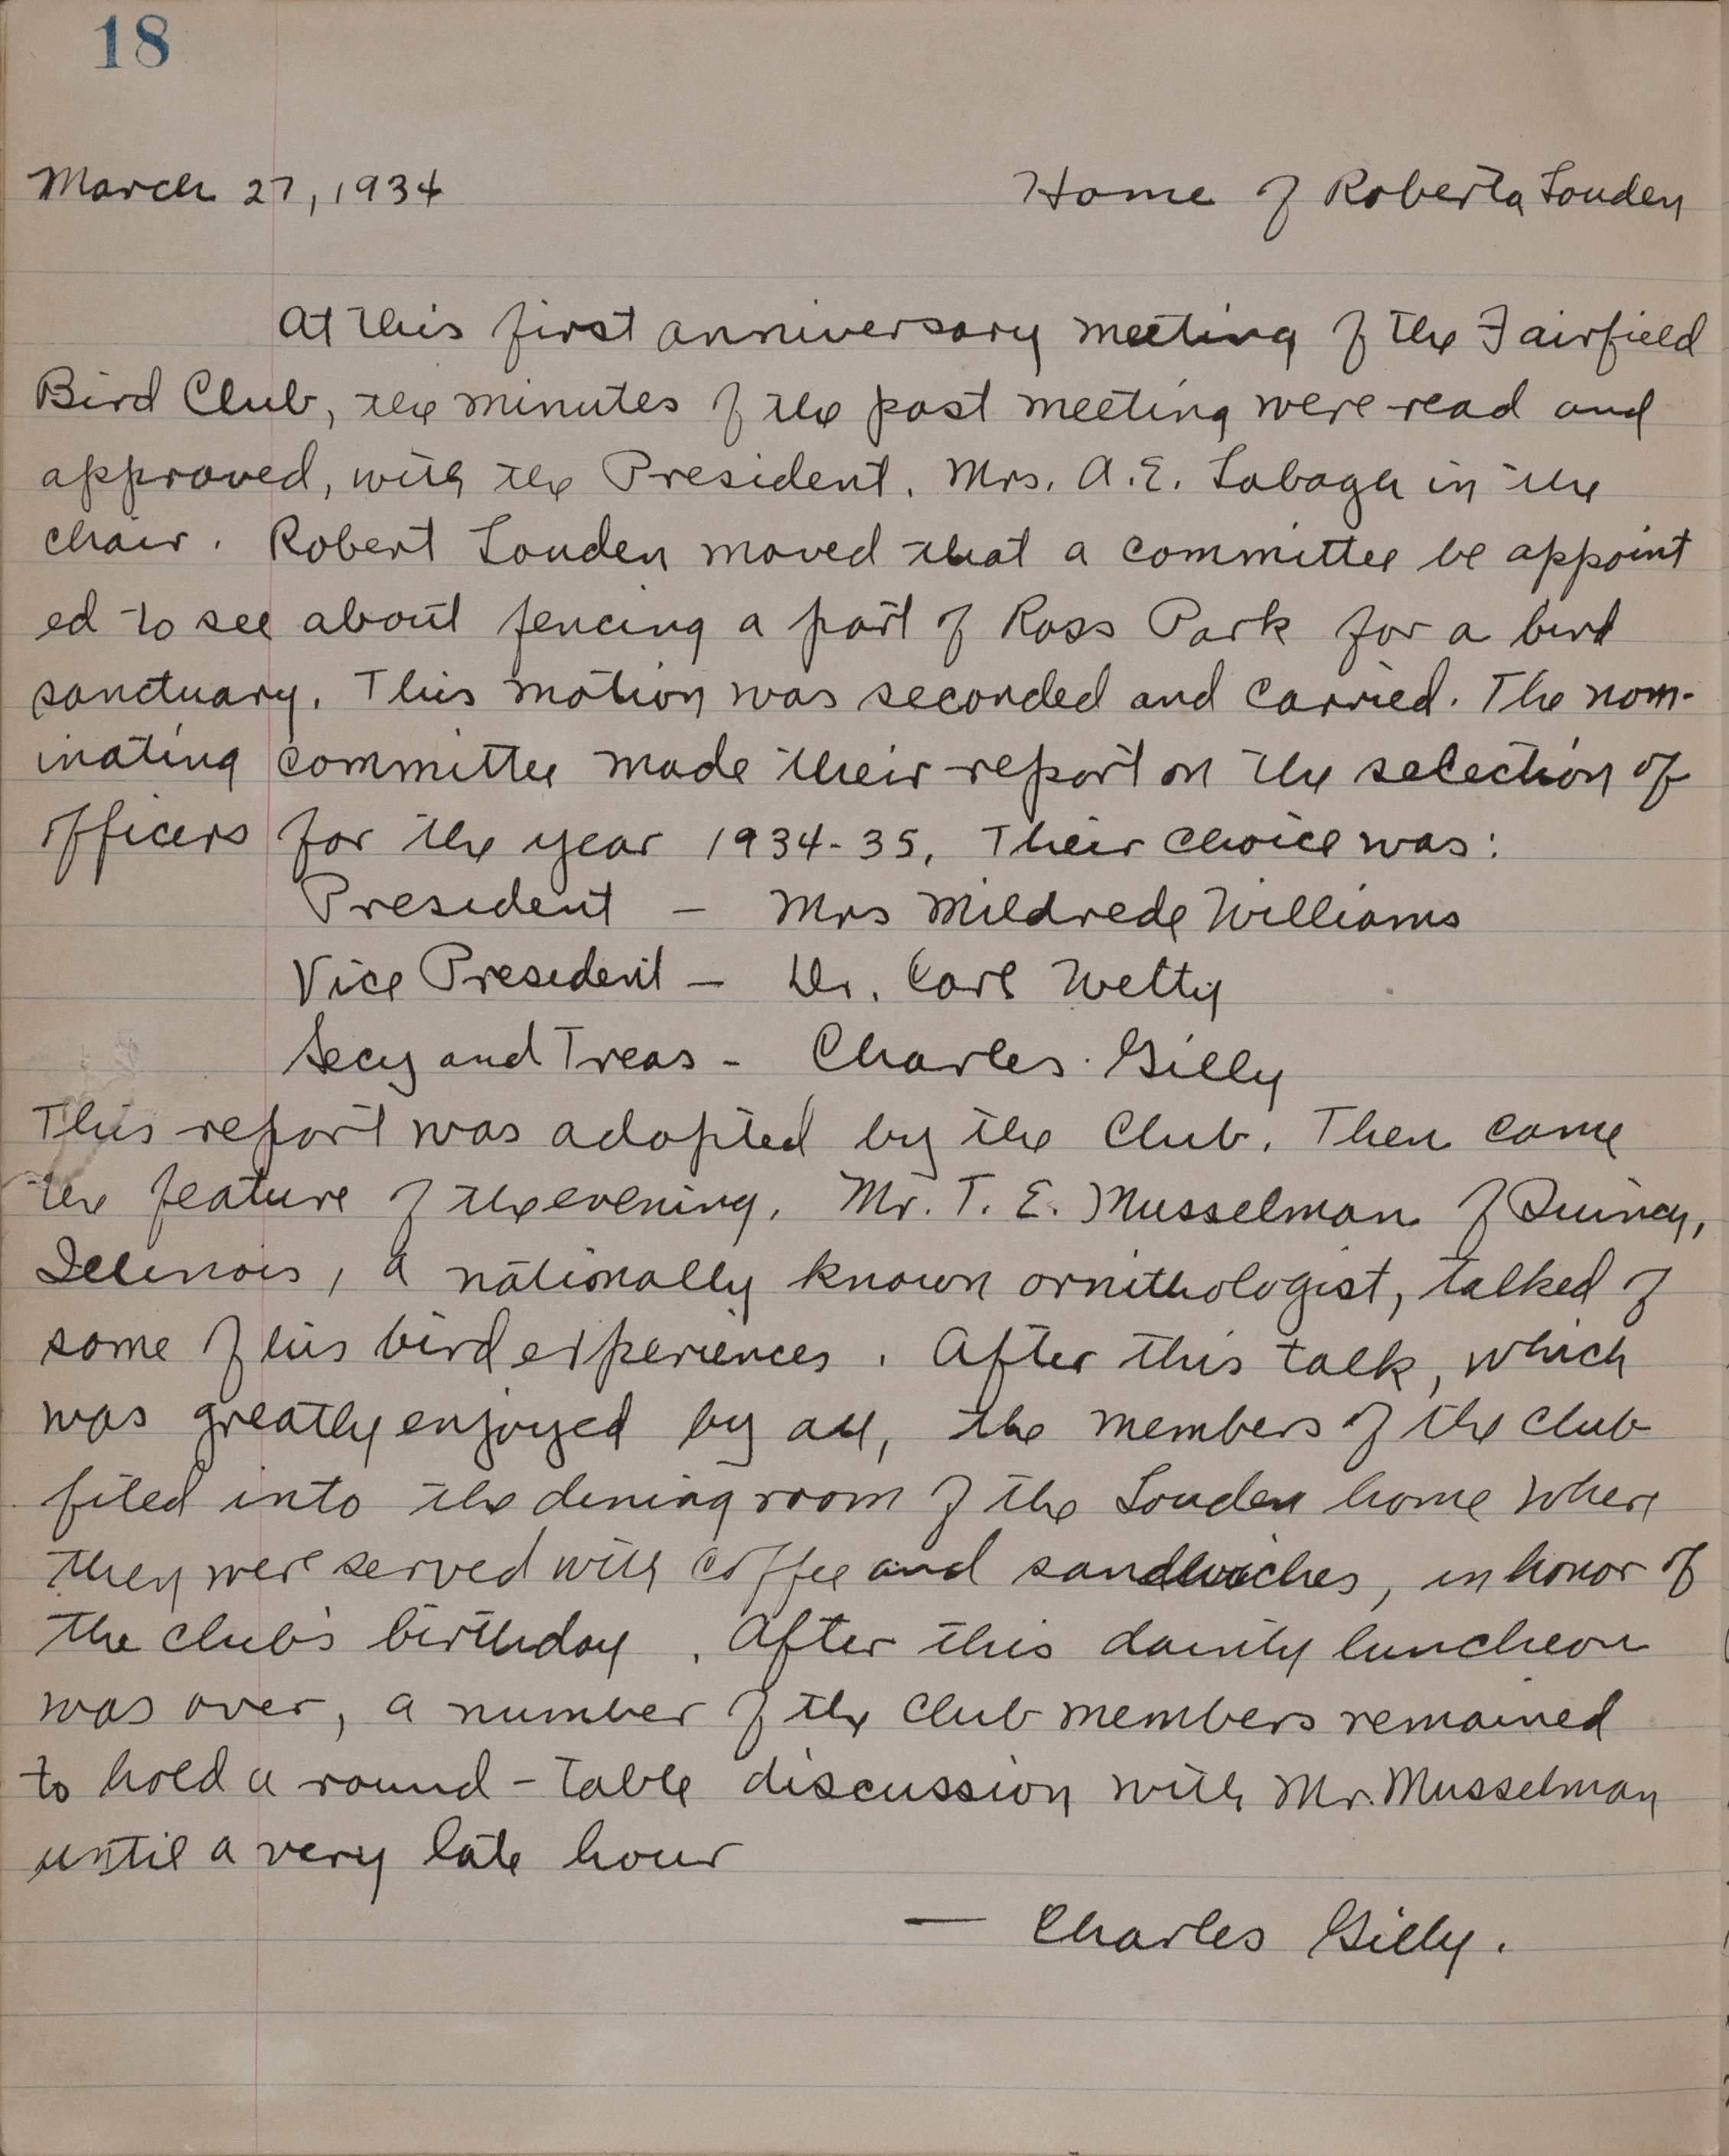 18
March 27, 1934 Home of Roberta Louden
At this first anniversary meeting of the Fairfield
Bird Club, the minutes of the past meeting were read and
approved, with the President, Mrs. A. E. Labagh in the
chair. Robert Louden moved that a committee be appoint
ed to see about fencing a part of Ross Park for a bird
sanctuary. This motion was seconded and carried. The nom-
inating committee made their report on the selection of
officers for the year 1934-35. Their choice was:
President - Mrs Mildrede Williams
Vice President - Dr. Carl Welty
Secy and Treas - Charles Gilly
This report was adopted by the Club. Then came
the feature of the evening. Mr. T. E. Musselman of Quincy,
Illinois, a nationally known ornithologist, talked of
some of his bird experiences. After this talk, which
was greatly enjoyed by all, the members of the club
filed into the dining room of the Louden home where
they were served with coffee and sandwiches, in honor of
the club's birthday. After this dainty luncheon
was over, a number of the club members remained
to hold a round-table discussion with Mr. Musselman
until a very late hour
— Charles Gilly.